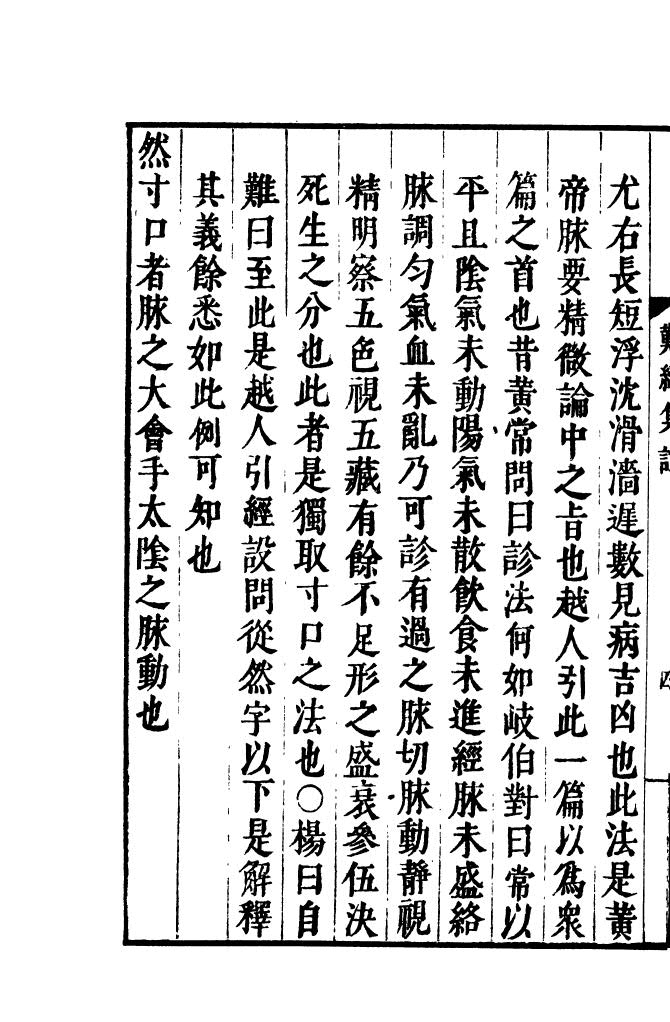 難經集註
四
尤右長短浮沈滑濇遲數見病吉凶也此法是黃
帝脉要精微論中之㫖也越人引此一篇以爲衆
篇之首也昔黃帝問曰診法何如岐伯對曰常以
平旦陰氣未動陽氣未散飲食未進經脉未盛絡
脉調勻氣血未亂乃可診有過之脉切脉動靜視
精明察五色視五藏有餘不足形之盛衰參伍決
死生之分也此者是獨取寸口之法也○楊曰自
難曰至此是越人引經設問從然字以下是解釋
其義餘悉如此例可知也
然寸口者脉之大會手太陰之脉動也